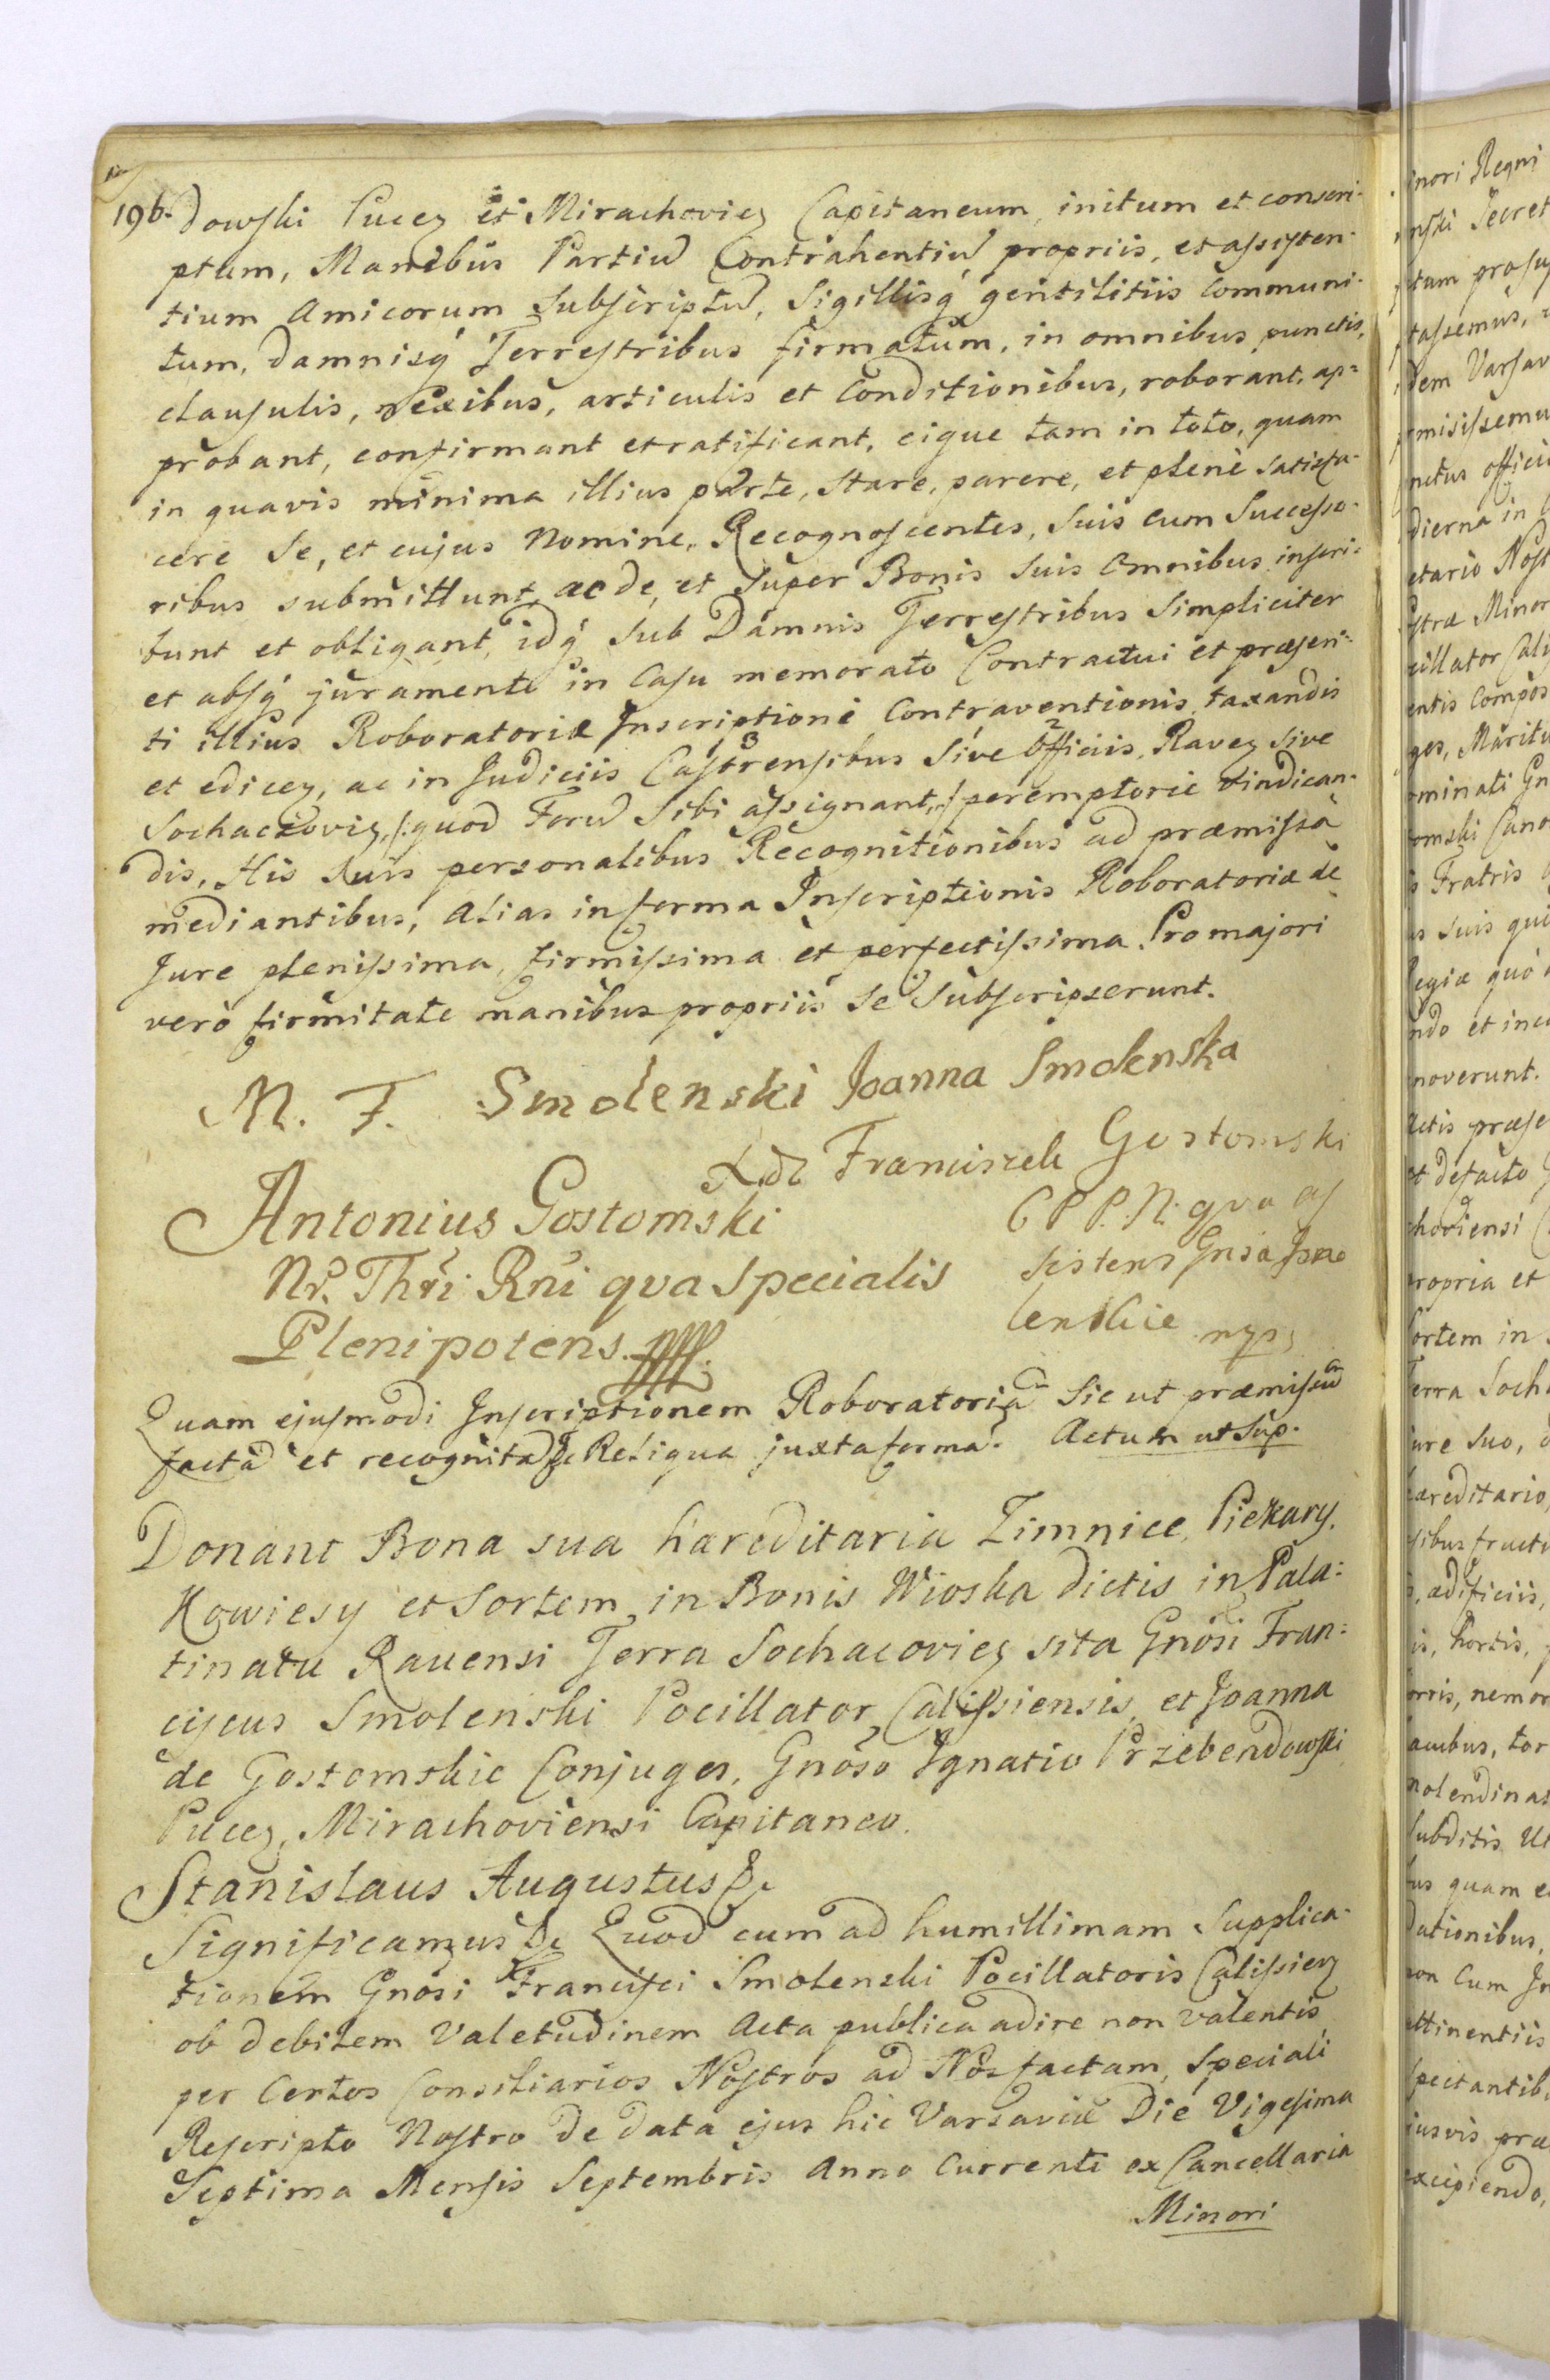 196. dowski Pucen et Mirachovien Capitaneum, initum et conscri-
ptum, Manibus Partiu Contrahentiu propriis, et assisten-
tium Amicorum Subscriptu, Sigillisq gentilitiis Communi-
tum, damnisq Terrestribus firmatum, in omnibus punctis,
clausulis, nexibus, articulis et Conditionibus, roborant, ap=
probant, confirmant et ratificant, eique tam in toto, quam
in quavis minima illius parte, Stare, parere, et plenè satisfa-
cere Se, et cujus Nomine, Recognoscentes, Suis cum Successo-
ribus submittunt, ac de, et Super Bonis Suis Omnibus inscri-
bunt et obligant, idq Sub Damnis Terrestribus Simpliciter
et absq juramento in Casu memorato Contractui et præsen-
ti illius Roboratoriæ Inscriptioni Contraventionis taxandis
et edicen, ac in Judiciis Castrensibus Sive Officiis, Raven sive
Sochaczovien, /:quod Foru Sibi assignant,:/ peremptoriè vindican-
dis, His Suis personalibus Recognitionibus ad præmissa
mediantibus, Alias in forma Inscriptionis Roboratoriæ de
Jure plenissima, firmissima et perfectissima. Pro majori
verò firmitate manibus propriis Se Subscripserunt.
M. F. Smolenski Joanna Smolenska
Xdz Franciszek Gostomski
Antonius Gostomski
C P P. N. qva as
Nr. Thri Rni qva Specialis
sistens Gnsa Smo
Plenipotens mpp.
lenskie mpp
Quam ejusmodi Inscriptionem Roboratoria Sic ut præmissu
facta et recognita &c Reliqua juxta forma. Actum ut Sup.
Donant Bona sua hæreditaria Zimnice, Piekary,
Kowiesy et Sortem in Bonis Wioska dictis in Pala:
tinatu Ravensi Terra Sochacovien sita Gnosi Fran:
ciscus Smolenski Pocillator Calissiensis, et Joanna
de Gostomskie Conjuges, Gnoso Ignatio Przebendowski
Pucen, Mirachoviensi Capitaneo.
Stanislaus Augustus &c
Significamus &c Quod cum ad humillimam Supplica-
tionem Gnosi Francisci Smolenski Pocillatoris Calissien
ob debilem Valetudinem Acta publica adire non valentis
per Certos Consiliarios Nostros ad Nos factam, Speciali
Rescripto Nostro de data ejus hic Varsaviæ Die Vigesima
Septima Mensis Septembris Anno Currenti ex Cancellaria
Minori